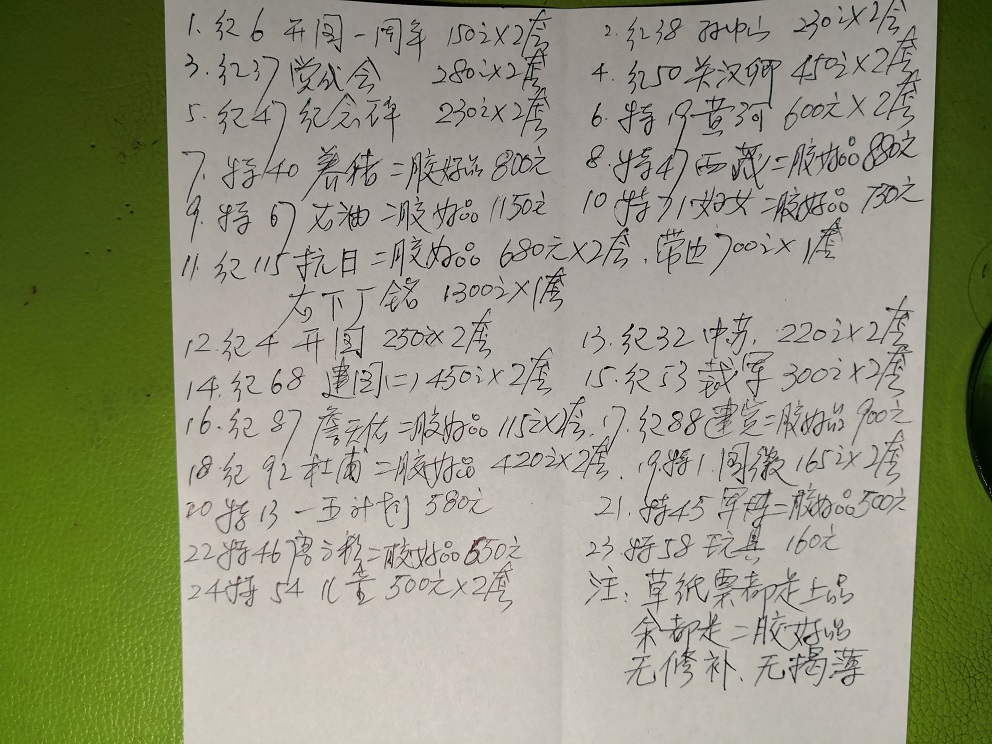 1. 纪6 开国一周年 150元×2套 2. 纪38 孙中山 230元×2套
3. 纪37 党代会 280元×2套 4. 纪50 关汉卿 450元×2套
5. 纪47 纪念碑 230元×2套 6. 特19 黄河 600元×2套
7. 特40 养猪 二胶好品 800元 8. 特47 西藏 二胶好品 880元
9. 特67 石油 二胶好品 1150元 10 特71 妇女 二胶好品 730元
11. 纪115 抗日 二胶好品 680元×2套、带边 700元×1套
右下厂铭 1300元×1套
12. 纪4 开国 250元×2套 13. 纪32 中苏. 220元×2套
14. 纪68 建国(二) 450元×2套 15. 纪53 裁军 300元×2套
16. 纪87 詹天佑 二胶好品 115元×2套. 17. 纪88 建党 二胶好品 900元
18 纪92 杜甫 二胶好品 420元×2套. 19. 特1 国徽 165元×2套
20 特13 一五计划 580元 21. 特45 军博 二胶好品 500元
22 特46 唐三彩 二胶好品 550元 23. 特58 玩具 160元
24 特54 儿童 500元×2套 注: 草纸票都是上品
余都是二胶好品
无修补、无揭薄